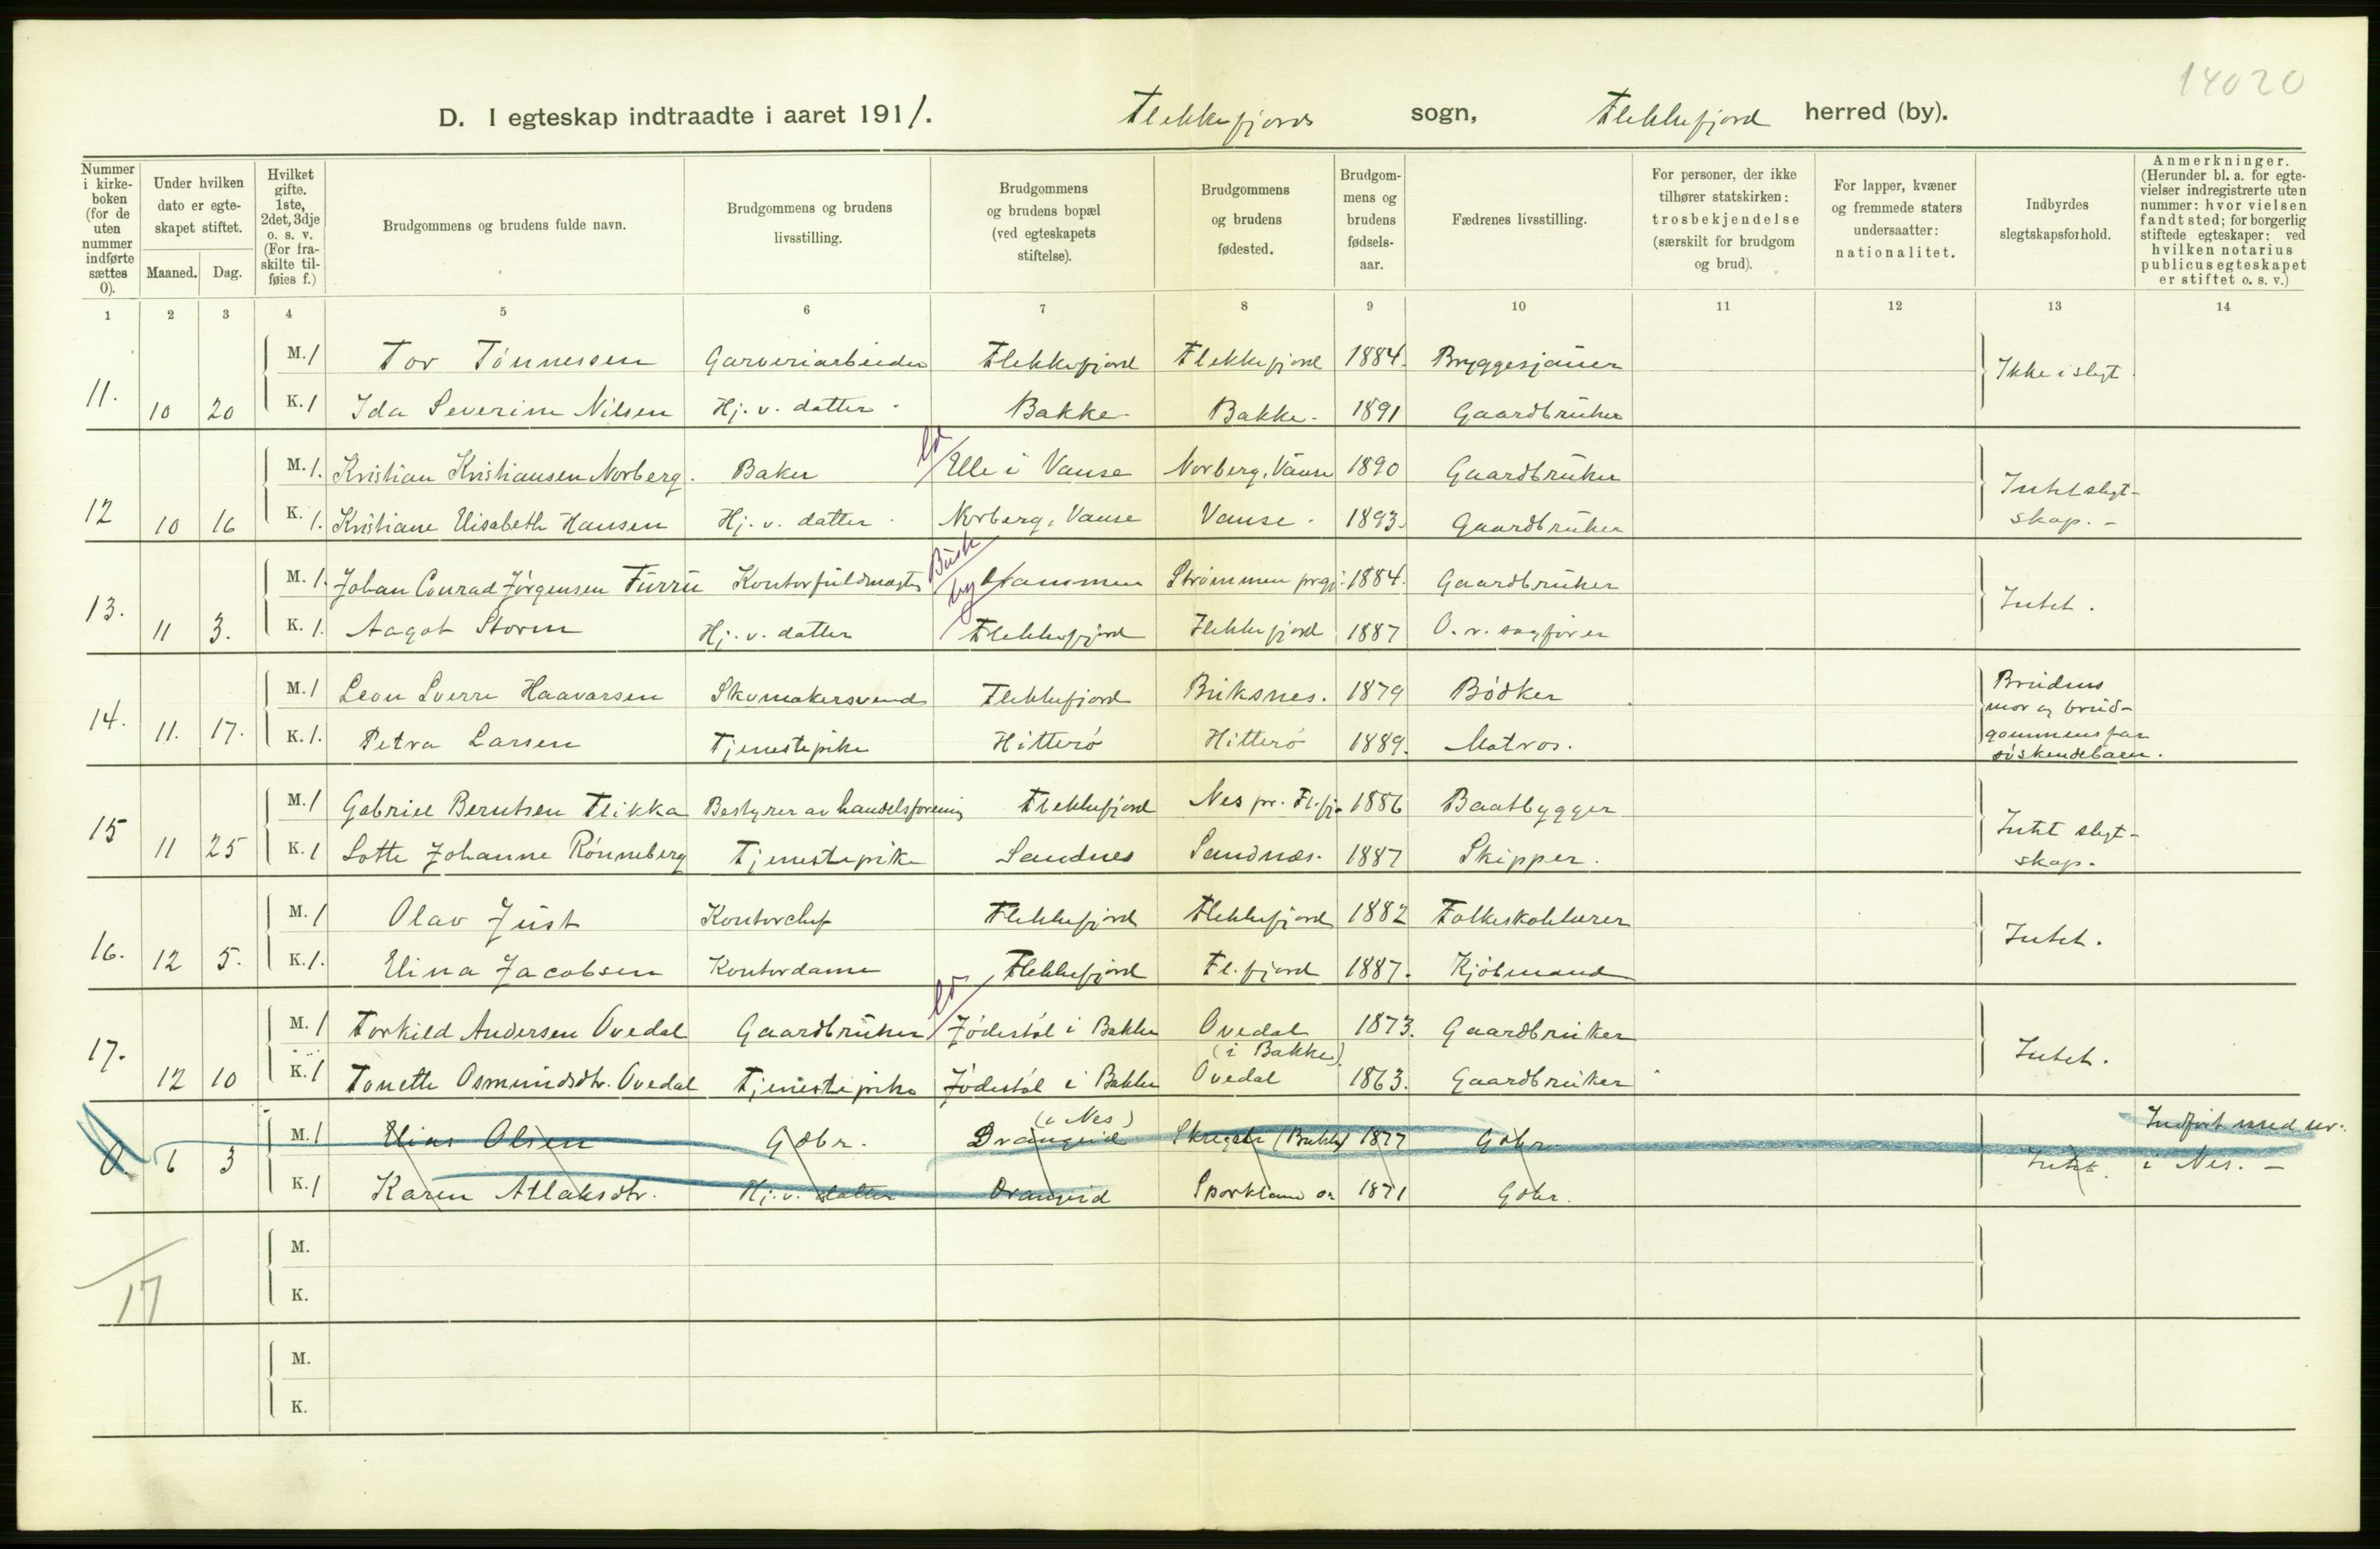 14020
D. I egteskap indtraadte i aaret 1911. Flekkefjords sogn, Flekkefjord herred (by).
Nummer i kirkeboken (for de uten nummer indførte sættes 0).
Under hvilken dato er egteskapet stiftet.
Maaned. Dag.
Hvilket gifte. 1ste, 2det, 3dje o. s. v. (For fraskilte tilføies f.)
Brudgommens og brudens fulde navn.
Brudgommens og brudens livsstilling.
Brudgommens og brudens bopæl (ved egteskapets stiftelse).
Brudgommens og brudens fødested.
Brudgommens og brudens fødselsaar.
Fædrenes livsstilling.
For personer, der ikke tilhører statskirken: trosbekjendelse (særskilt for brudgom og brud).
For lapper, kvæner og fremmede staters undersaatter: nationalitet.
Indbyrdes slegtskapsforhold.
Anmerkninger. (Herunder bl. a. for egtevielser indregistrerte uten nummer: hvor vielsen fandt sted; for borgerlig stiftede egteskaper: ved hvilken notarius publicus egteskapet er stiftet o. s. v.)
1 2 3 4 5 6 7 8 9 10 11 12 13 14
M. 1 Tov Tønnessen Garveriarbeider Flekkefjord Flekkefjord 1884. Bryggesjauer Ikke i slegt
11. 10 20 K. 1 Ida Severine Nilsen Hj. v. datter. Bakke Bakke 1891 Gaardbruker
M. 1. Kristian Kristiansen Norberg. Baker Elle i Vanse Norberg, Vanse 1890 Gaardbruker Intet slegt-
12 10 16 K. 1. Kristiane Elisabeth Hansen Hj. v. datter. Norberg, Vanse Vanse. 1893. Gaardbruker skap. -
Busk
M. 1. Johan Conrad Jørgensen Furru Kontorfuldmægtig by Strømmen prgj. 1884. Gaardbruker Intet.
13. 11 3. K. 1. Aagot Storm Hj. v. datter Flekkefjord Flekkefjord 1887 O. r. sagfører
M. 1 Leon Sverre Haavarsen Skomakersvend Flekkefjord Buksnes. 1879 Bødker Brudens mor og brud-
14. 11. 17. K. 1. Petra Larsen Tjenestepike Hitterø Hitterø 1889. Matros. gommens far søskendebarn.
M. 1 Gabriel Berntsen Flikka Bestyrer av handelsforening Flekkefjord Nes pr. Fl.fj. 1886 Baatbygger Intet slegt-
15 11 25 K. 1 Lotte Johanne Rønneberg Tjenestepike Sandnes Sandnes. 1887 Skipper. skap.
M. 1 Olav Just Kontorchef Flekkefjord Flekkefjord 1882 Folkeskolelærer Intet.
16. 12 5. K. 1. Elina Jacobsen Kontordame Flekkefjord Fl.fjord 1887. Kjøbmand
M. 1 Torkild Andersen Ovedal Gaardbruker Jødestøl i Bakke Ovedal (i Bakke) 1873. Gaardbruker Intet.
17. 12 10 K. 1 Tonette Osmundsdtr. Ovedal Tjenestepike Jødestøl i Bakke Ovedal 1863. Gaardbruker
M. 1 Elias Olsen Gdbr. (i Nes) Drangeid (Bakke) 1877 Gdbr. Intet. Indført med nr.
0. 6 3 K. 1 Karen Atlaksdtr. Hj. v. datter Drangeid 1871 Gdbr. i Nes. -
M.
K.
17
M.
K.